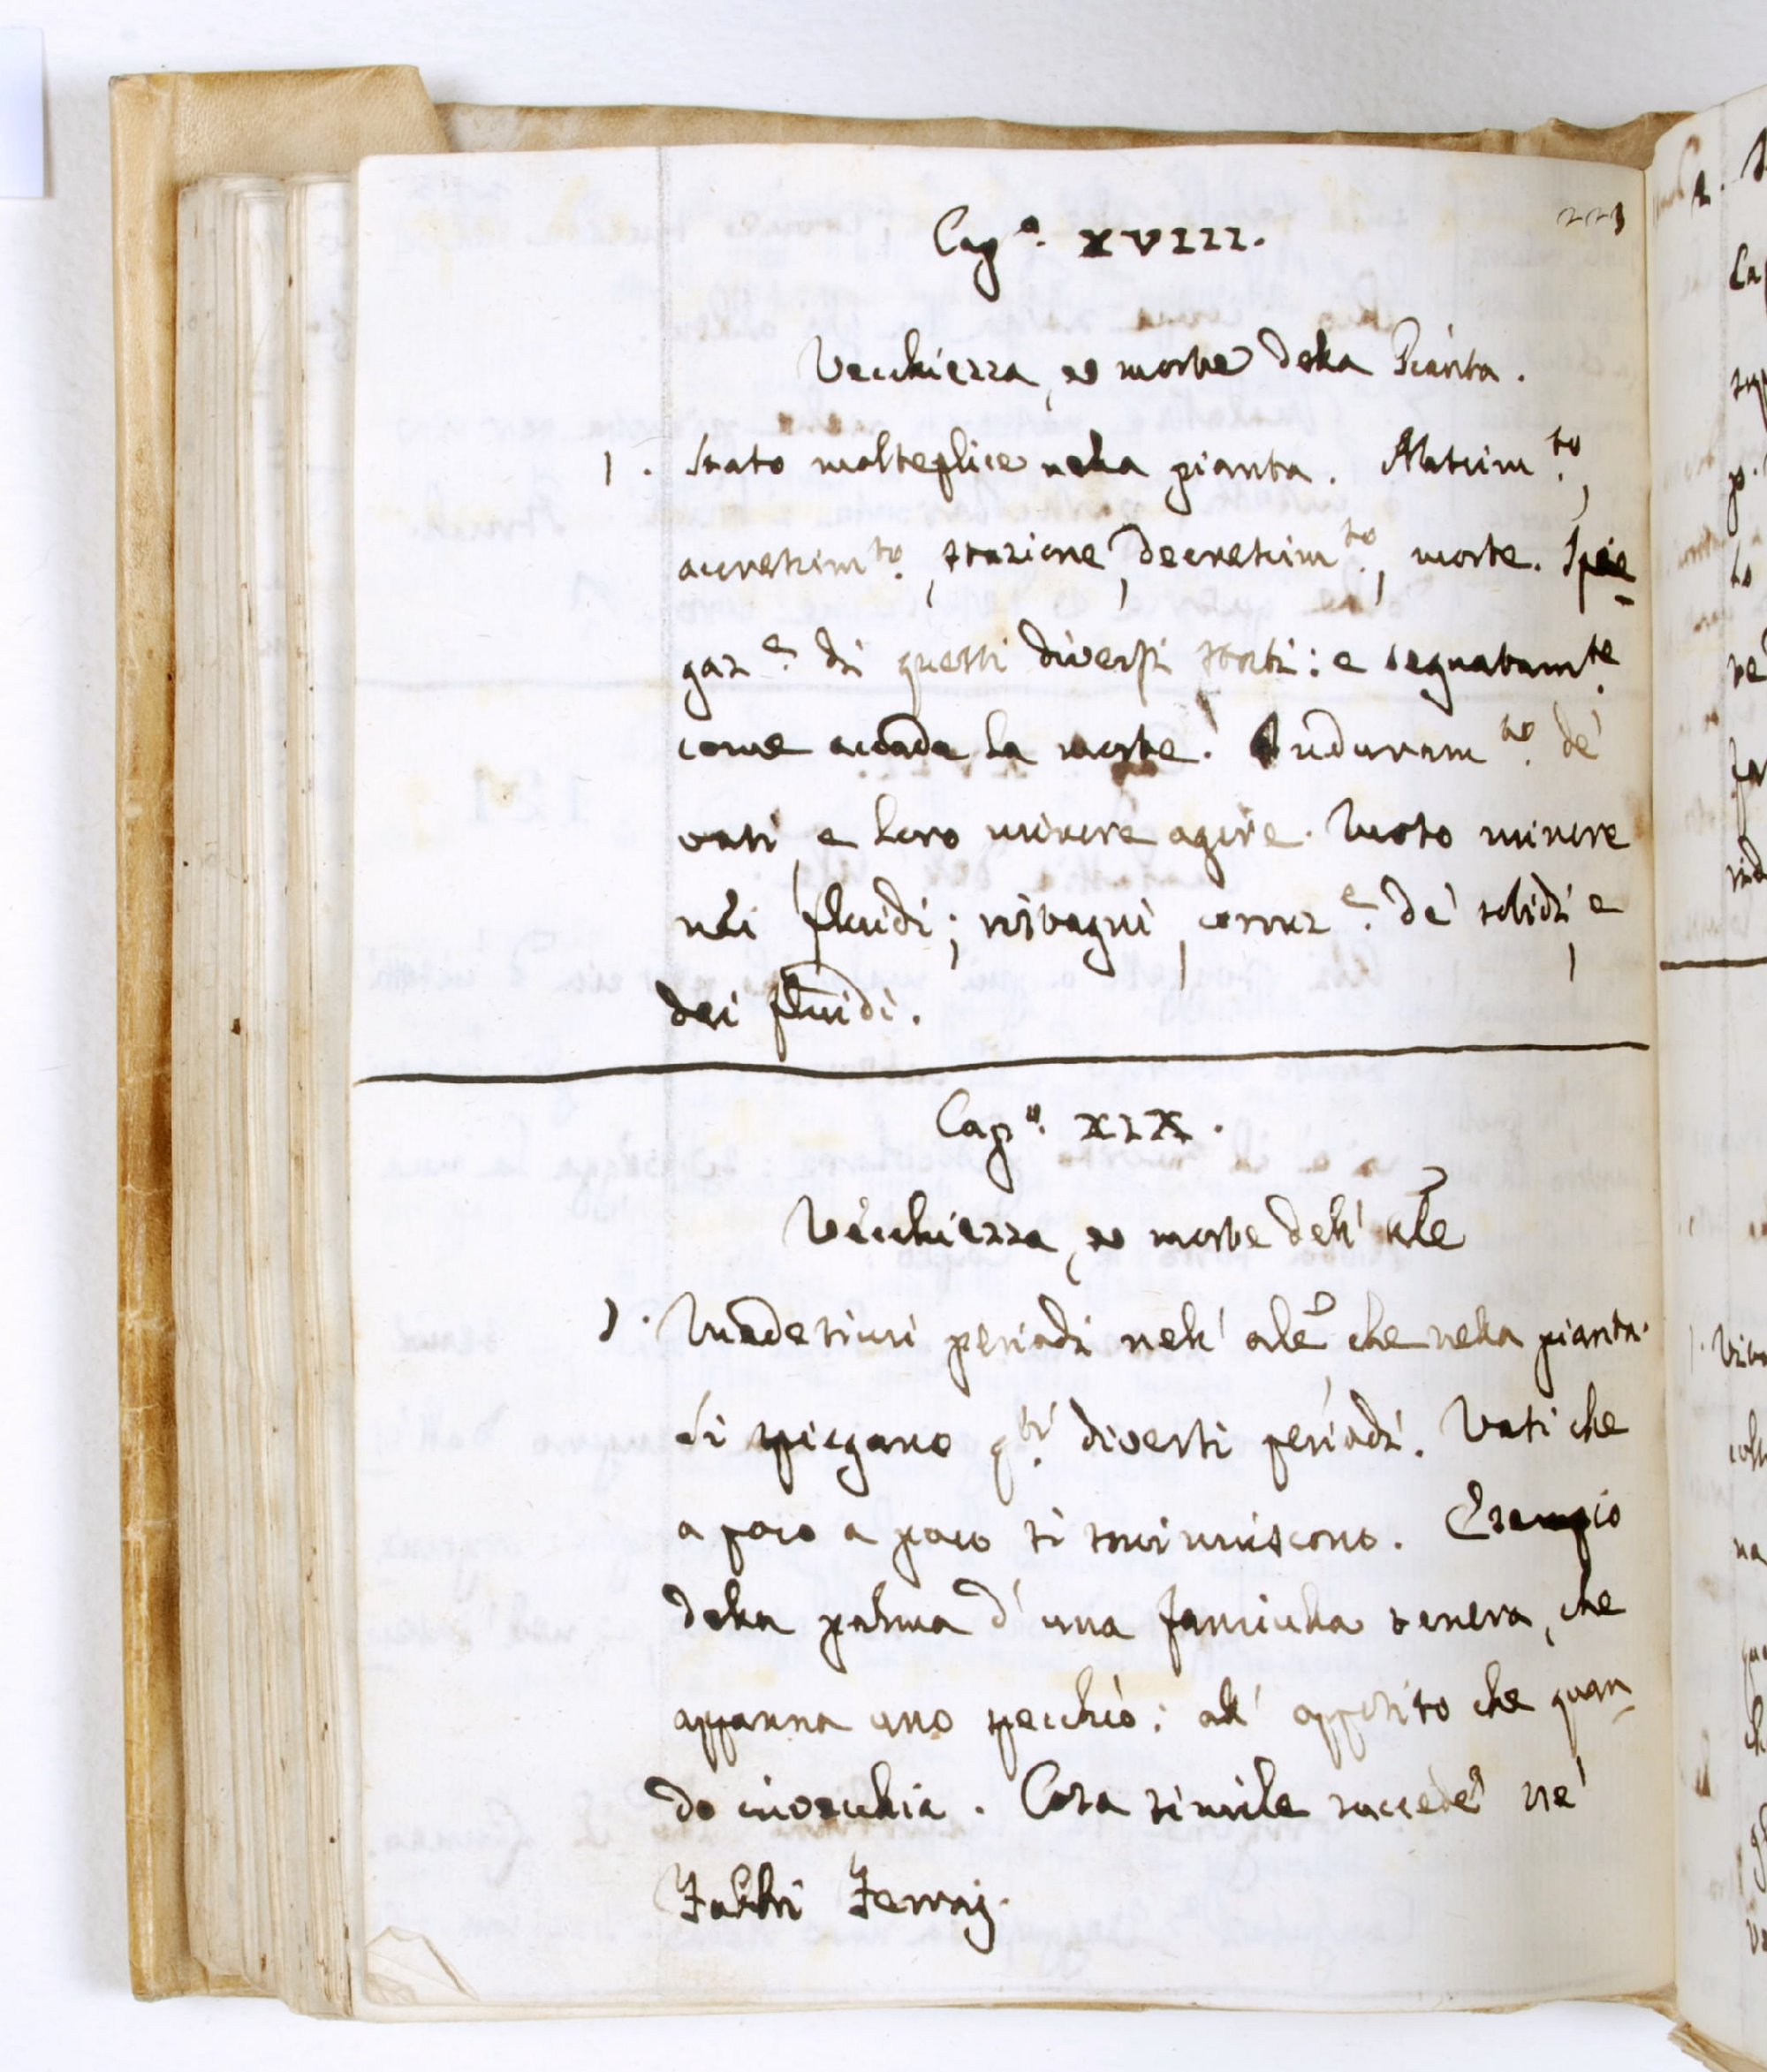 223
Cap.º XVIII.
Vecchiezza, e morte della Pianta.
1. Stato molteplice nella pianta. Nascim.to,
accrescim.to, stazione, decrescim.to, morte. Spie
gaz.e di questi diversi stati: e segnatam.te
come accada la morte. Induram.to de'
vasi, e loro minore agire. Moto minore
nei fluidi; ristagni, corruz.e de' solidi, e
dei fluidi.
Cap.º XIX.
Vecchiezza, e morte dell' ale
1. Medesimi periodi nell' ale, che nella pianta.
Si spiegano q.ti diversi periodi. Vasi che
a poco a poco si sminuiscono. Esempio
della palma d' una fanciulla tenera, che
appanna uno specchio: all' opposito che quan
do invecchia. Cosa simile succede ne'
Fabbri Ferraj.